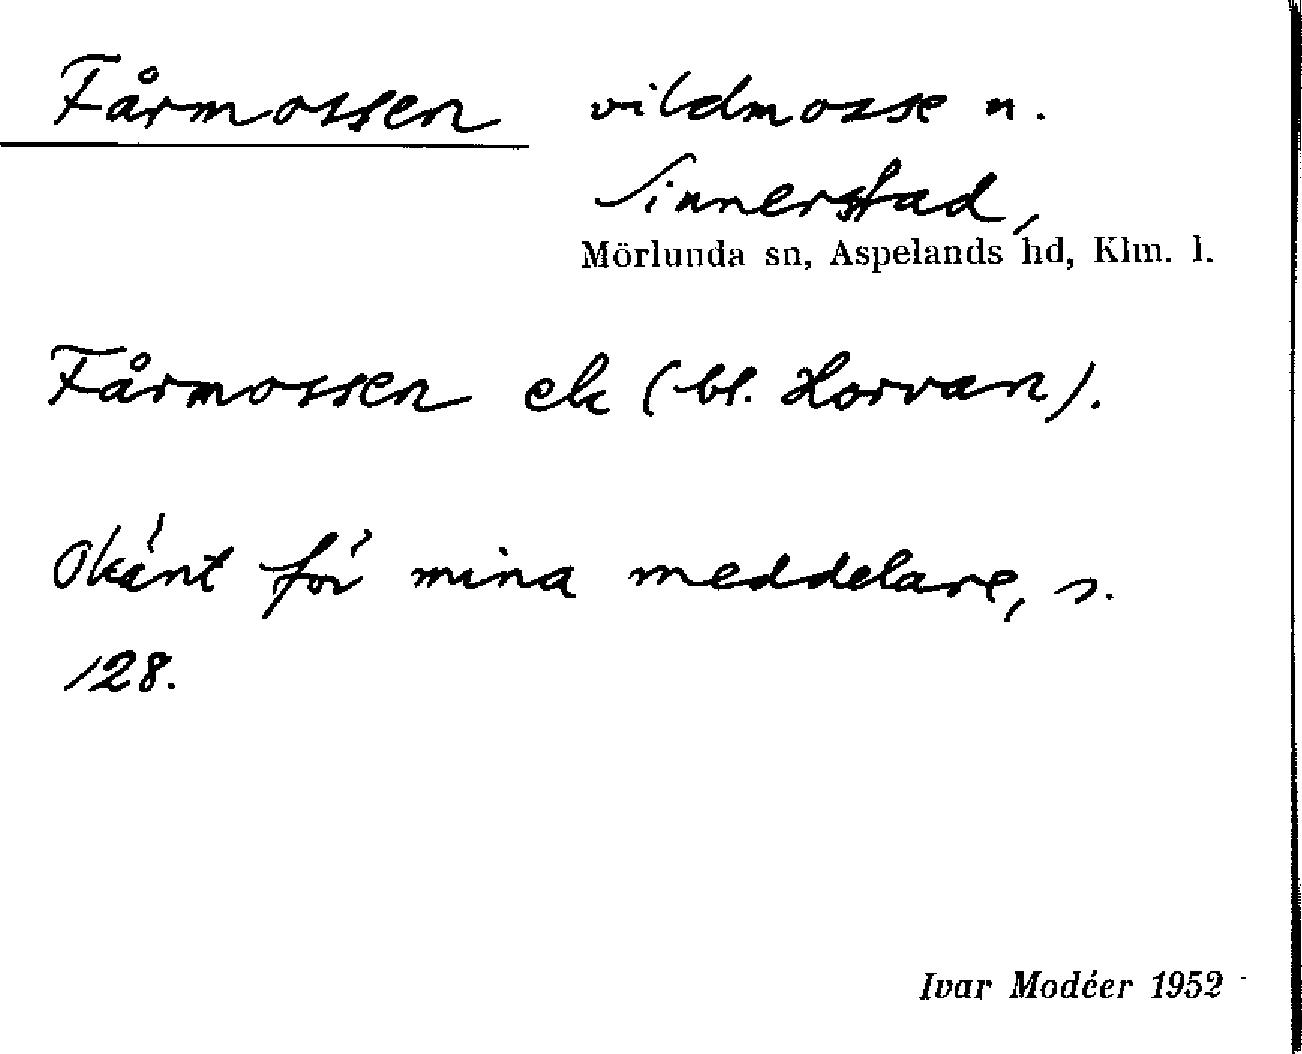 Fårmossen vildmosse n.
Sinnerstad,
Mörlunda sn, Aspelands hd, Klm. l.
Fårmossen ek (bl. Horvan).
Okänt för mina meddelare, s.
128.
Ivar Modéer 1952